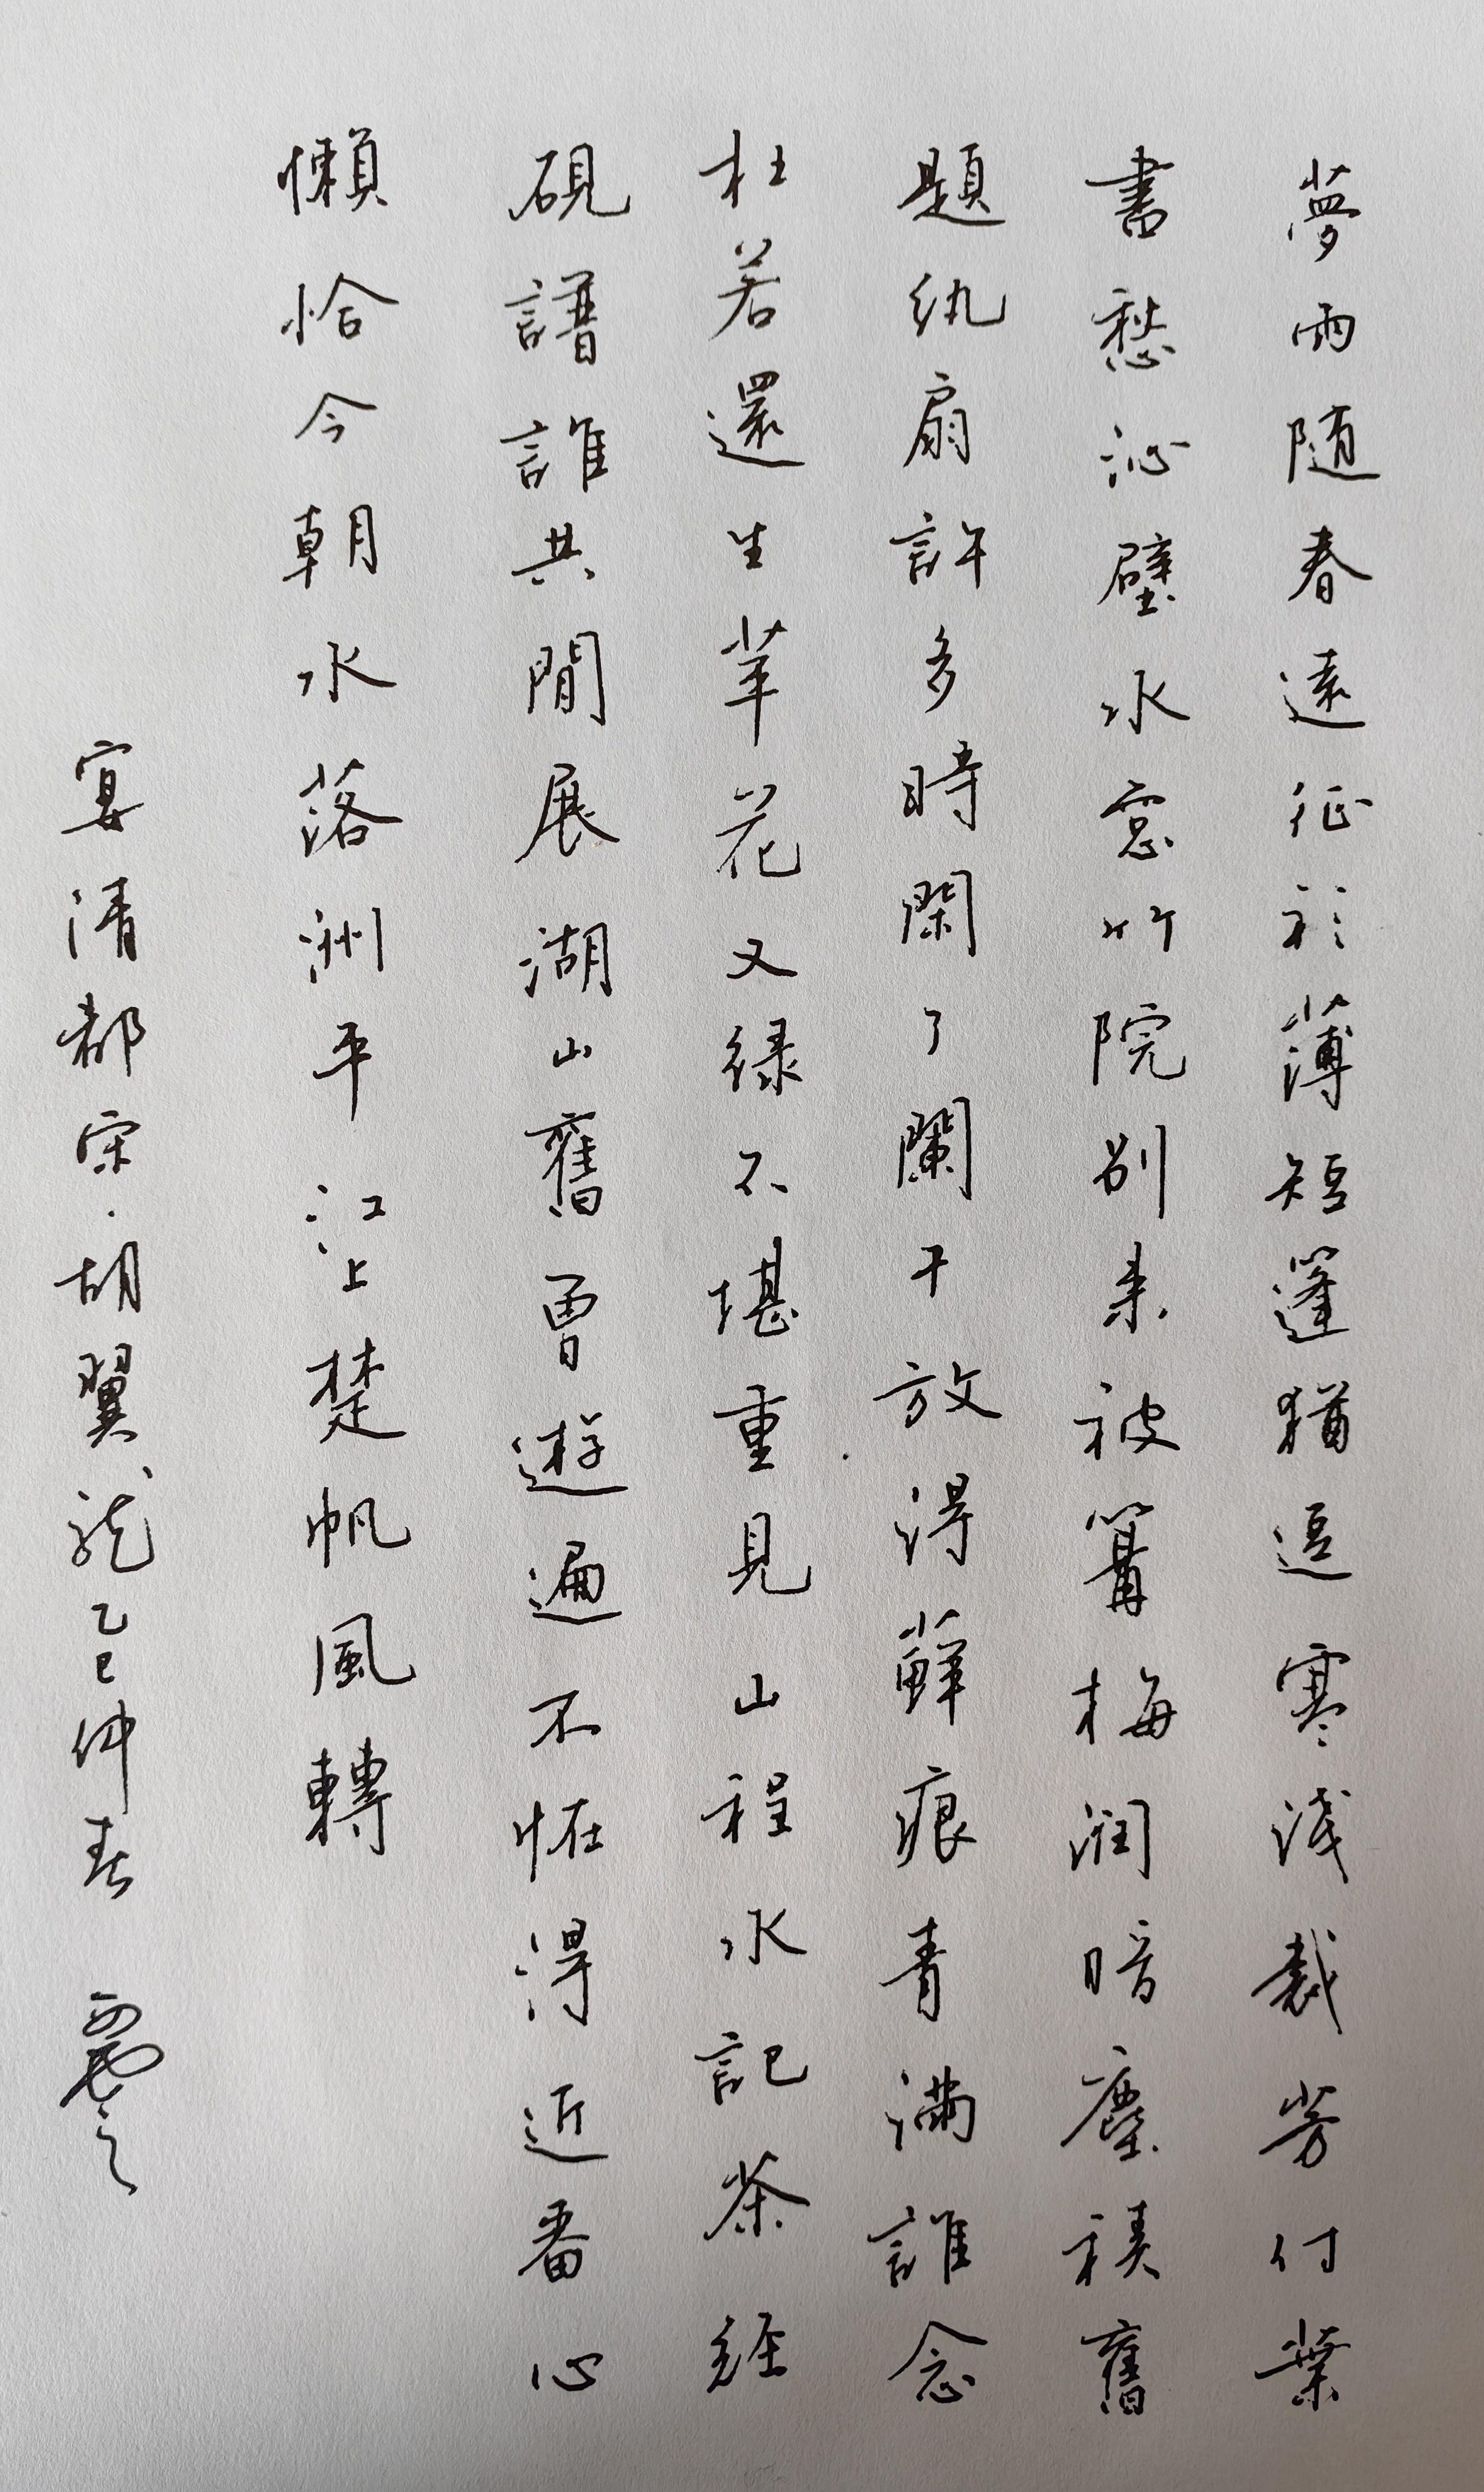 夢雨随春遠征衫薄短篷猶逗寒淺裁芳付葉
書愁沁壁水窓竹院別来被篝梅潤暗塵積舊
題紈扇許多時閑了闌干放得蘚痕青滿誰念
杜若還生苹花又緑不堪重見山程水記茶経
硯譜誰共閒展湖山舊曾遊遍不恠得近番心
懶恰今朝水落洲平江上楚帆風轉
宴清都宋·胡翼龍乙巳仲春